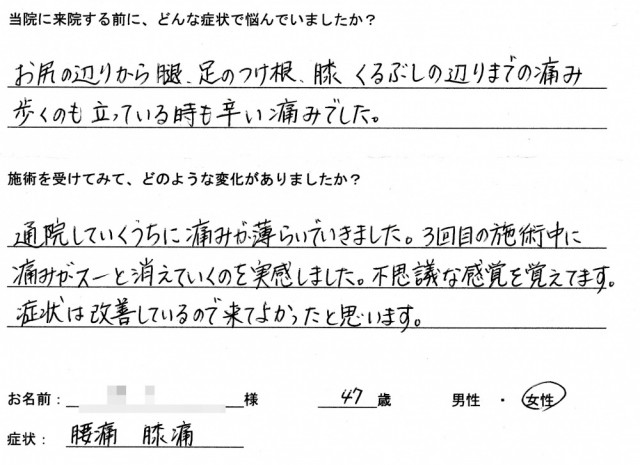 当院に来院する前に、どんな症状で悩んでいましたか？
お尻の辺りから腿、足のつけ根、膝 くるぶしの辺りまでの痛み
歩くのも立っている時も辛い痛みでした。
施術を受けてみて、どのような変化がありましたか？
通院していくうちに痛みが薄らいでいきました。3回目の施術中に
痛みがスーと消えていくのを実感しました。不思議な感覚を覚えてます。
症状は改善しているので来てよかったと思います。
お名前： 様 47 歳 男性 ・ 女性
症状： 腰痛 膝痛